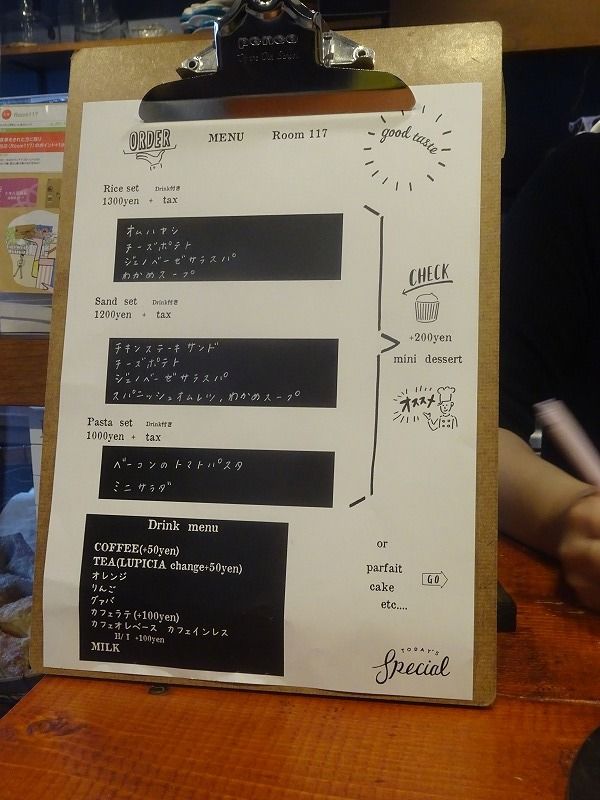 penco
ORDER MENU Room 117 good taste
Rice set Drink付き
1300yen + tax
オムハヤシ
チーズポテト
ジェノベーゼサラスパ
わかめスープ
Sand set Drink付き
1200yen + tax
チキンステーキサンド
チーズポテト
ジェノベーゼサラスパ
スパニッシュオムレツ,わかめスープ
Pasta set Drink付き
1000yen + tax
ベーコンのトマトパスタ
ミニサラダ
CHECK
+200yen
mini dessert
オススメ
Drink menu
COFFEE(+50yen)
TEA(LUPICIA change+50yen)
オレンジ
りんご
グァバ
カフェラテ(+100yen)
カフェオレベース カフェインレス
H/I +100yen
MILK
or
parfait
cake
etc....
GO
TODAY'S
Special
Room117